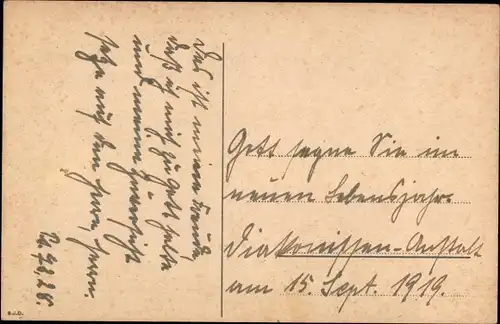 Das ist meine Freude,
daß ich mich zu Gott halte
und meine Zuversicht
setze auf den Herrn, Herrn.
Ps. 73, 28.
Gott segne Sie im
neuen Lebensjahr.
Diakonissen-Anstalt
am 15. Sept. 1919.